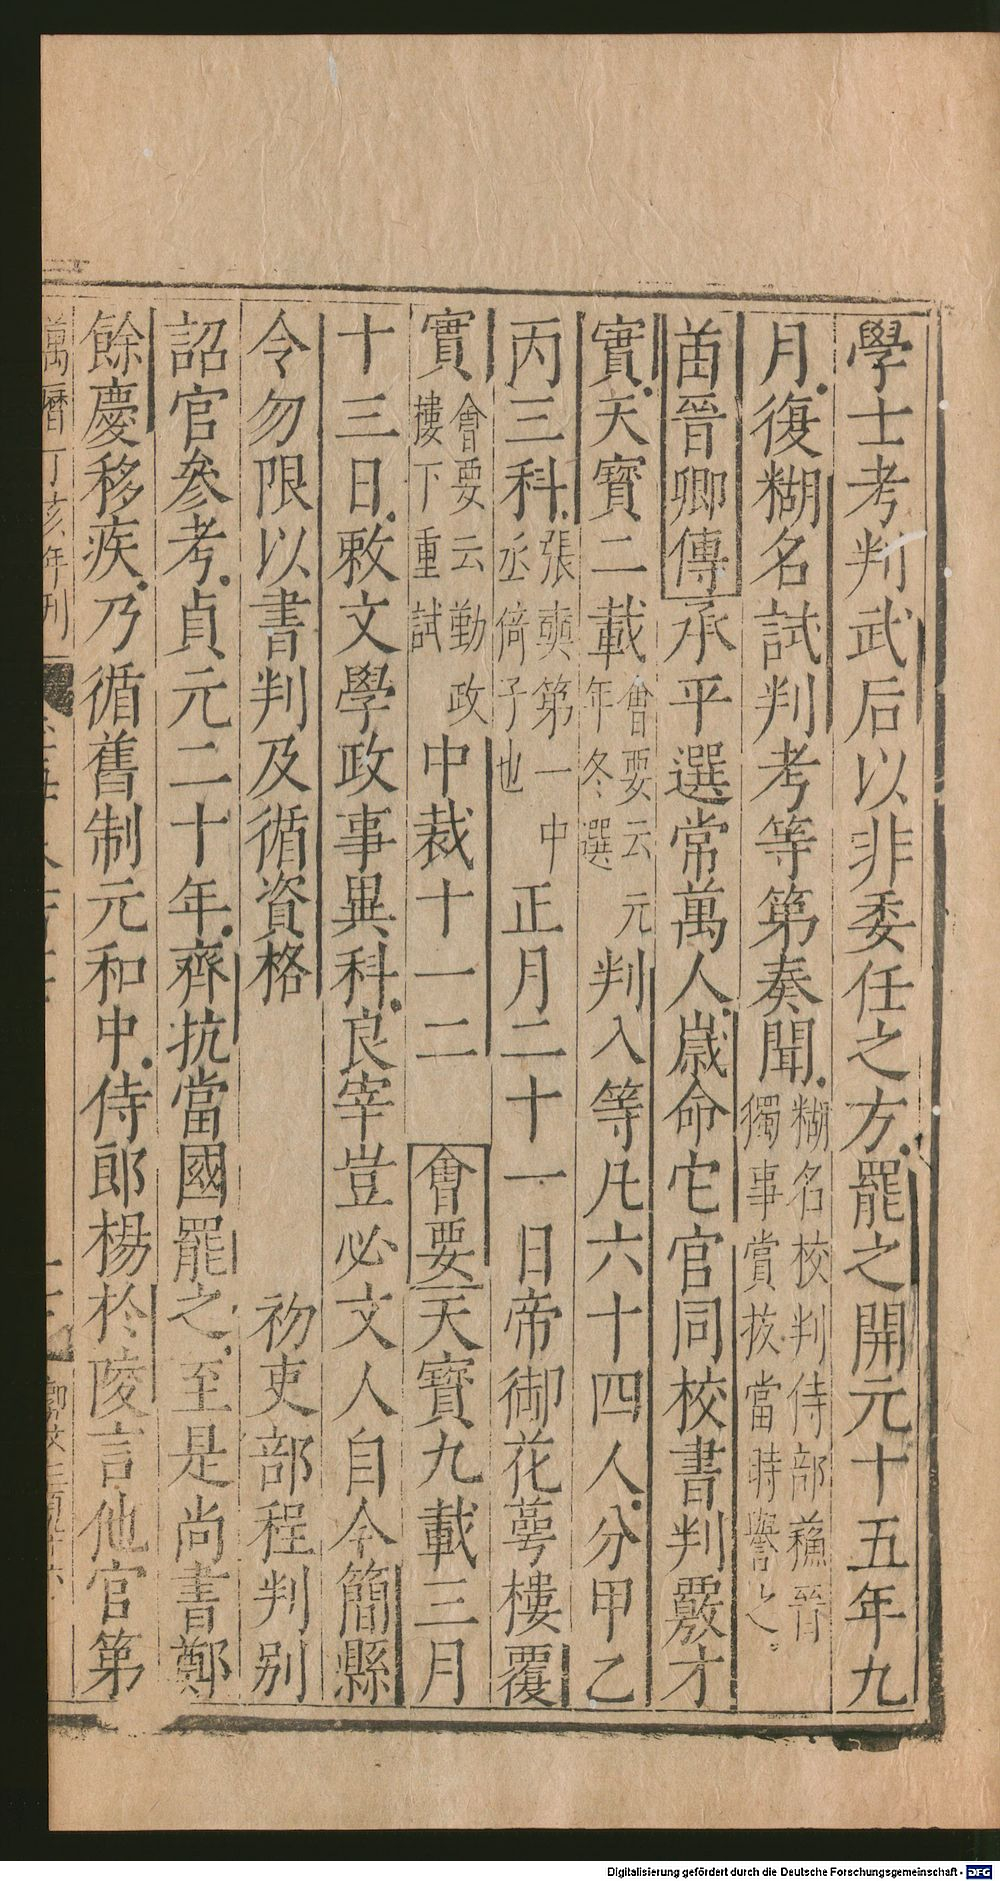 學士考判武后以非委任之方罷之開元十五年九
月復糊名試判考等第奏聞糊名校判侍郎蘇晉獨事賞拔當時譽之
苗晉卿傳承平選常萬人歲命它官同校書判覈才
實天寶二載會要云元年冬選判入等凡六十四人分甲乙
丙三科張奭第一中丞倚子也正月二十一日帝御花萼樓覆
實會要云勤政樓下重試中裁十一二會要天寶九載三月
十三日敕文學政事異科良宰豈必文人自今簡縣
令勿限以書判及循資格 初吏部程判別
詔官參考貞元二十年齊抗當國罷之至是尚書鄭
餘慶移疾乃循舊制元和中侍郎楊於陵言他官第
萬曆丁亥年刊
Digitalisierung gefördert durch die Deutsche Forschungsgemeinschaft - DFG